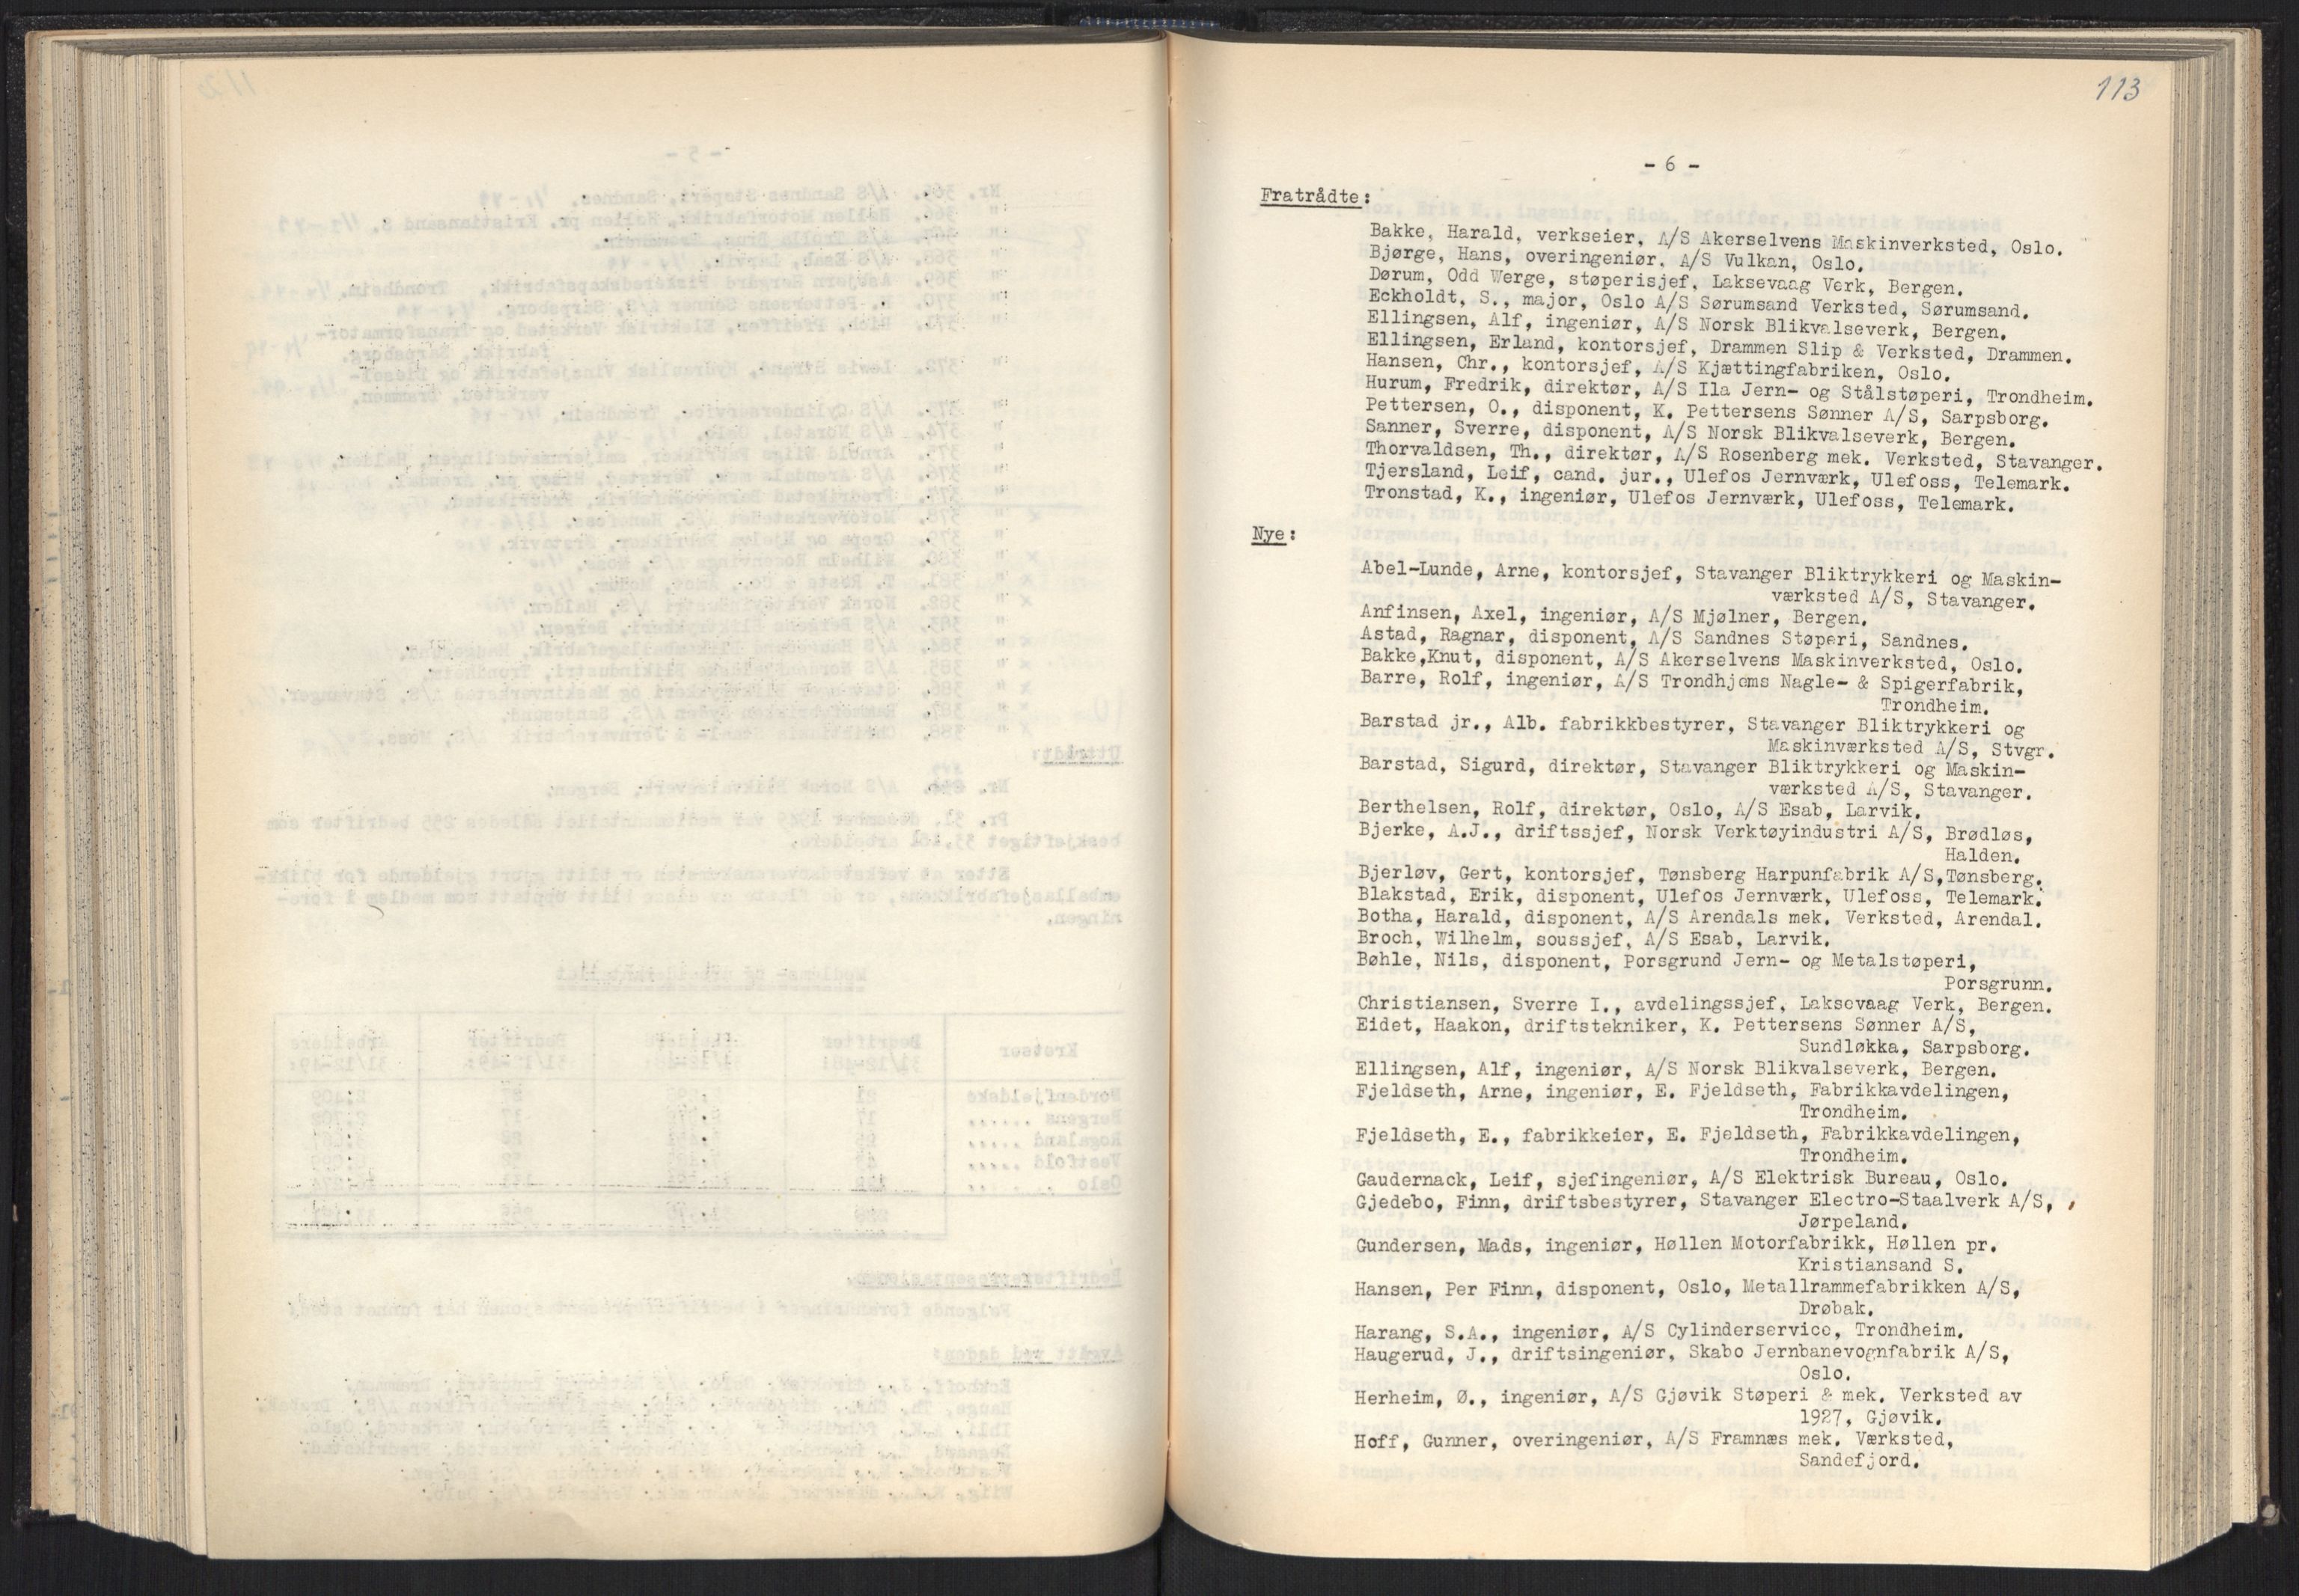 113
- 6 -
Fratrådte:
Bakke, Harald, verkseier, A/S Akerselvens Maskinverksted, Oslo.
Bjørge, Hans, overingeniør, A/S Vulkan, Oslo.
Dørum, Odd Werge, støperisjef, Laksevaag Verk, Bergen.
Eckholdt, S., major, Oslo A/S Sørumsand Verksted, Sørumsand.
Ellingsen, Alf, ingeniør, A/S Norsk Blikvalseverk, Bergen.
Ellingsen, Erland, kontorsjef, Drammen Slip & Verksted, Drammen.
Hansen, Chr., kontorsjef, A/S Kjættingfabriken, Oslo.
Hurum, Fredrik, direktør, A/S Ila Jern- og Stålstøperi, Trondheim.
Pettersen, O., disponent, K. Pettersens Sønner A/S, Sarpsborg.
Sanner, Sverre, disponent, A/S Norsk Blikvalseverk, Bergen.
Thorvaldsen, Th., direktør, A/S Rosenberg mek. Verksted, Stavanger.
Tjersland, Leif, cand. jur., Ulefos Jernværk, Ulefoss, Telemark.
Tronstad, K., ingeniør, Ulefos Jernværk, Ulefoss, Telemark.
Nye:
Abel-Lunde, Arne, kontorsjef, Stavanger Bliktrykkeri og Maskin-
værksted A/S, Stavanger.
Anfinsen, Axel, ingeniør, A/S Mjølner, Bergen.
Astad, Ragnar, disponent, A/S Sandnes Støperi, Sandnes.
Bakke,Knut, disponent, A/S Akerselvens Maskinverksted, Oslo.
Barre, Rolf, ingeniør, A/S Trondhjems Nagle- & Spigerfabrik,
Trondheim.
Barstad jr., Alb. fabrikkbestyrer, Stavanger Bliktrykkeri og
Maskinværksted A/S, Stvgr.
Barstad, Sigurd, direktør, Stavanger Bliktrykkeri og Maskin-
værksted A/S, Stavanger.
Berthelsen, Rolf, direktør, Oslo, A/S Esab, Larvik.
Bjerke, A.J., driftssjef, Norsk Verktøyindustri A/S, Brødløs,
Halden.
Bjerløv, Gert, kontorsjef, Tønsberg Harpunfabrik A/S,Tønsberg.
Blakstad, Erik, disponent, Ulefos Jernværk, Ulefoss, Telemark.
Botha, Harald, disponent, A/S Arendals mek. Verksted, Arendal.
Broch, Wilhelm, soussjef, A/S Esab, Larvik.
Bøhle, Nils, disponent, Porsgrund Jern- og Metalstøperi,
Porsgrunn.
Christiansen, Sverre I., avdelingssjef, Laksevaag Verk, Bergen.
Eidet, Haakon, driftstekniker, K. Pettersens Sønner A/S,
Sundløkka, Sarpsborg.
Ellingsen, Alf, ingeniør, A/S Norsk Blikvalseverk, Bergen.
Fjeldseth, Arne, ingeniør, E. Fjeldseth, Fabrikkavdelingen,
Trondheim.
Fjeldseth, E., fabrikkeier, E. Fjeldseth, Fabrikkavdelingen,
Trondheim.
Gaudernack, Leif, sjefingeniør, A/S Elektrisk Bureau, Oslo.
Gjedebo, Finn, driftsbestyrer, Stavanger Electro-Staalverk A/S,
Jørpeland.
Gundersen, Mads, ingeniør, Høllen Motorfabrikk, Høllen pr.
Kristiansand S.
Hansen, Per Finn, disponent, Oslo, Metallrammefabrikken A/S,
Drøbak.
Harang, S.A., ingeniør, A/S Cylinderservice, Trondheim.
Haugerud, J., driftsingeniør, Skabo Jernbanevognfabrik A/S,
Oslo.
Herheim, Ø., ingeniør, A/S Gjøvik Støperi & mek. Verksted av
1927, Gjøvik.
Hoff, Gunner, overingeniør, A/S Framnæs mek. Værksted,
Sandefjord.